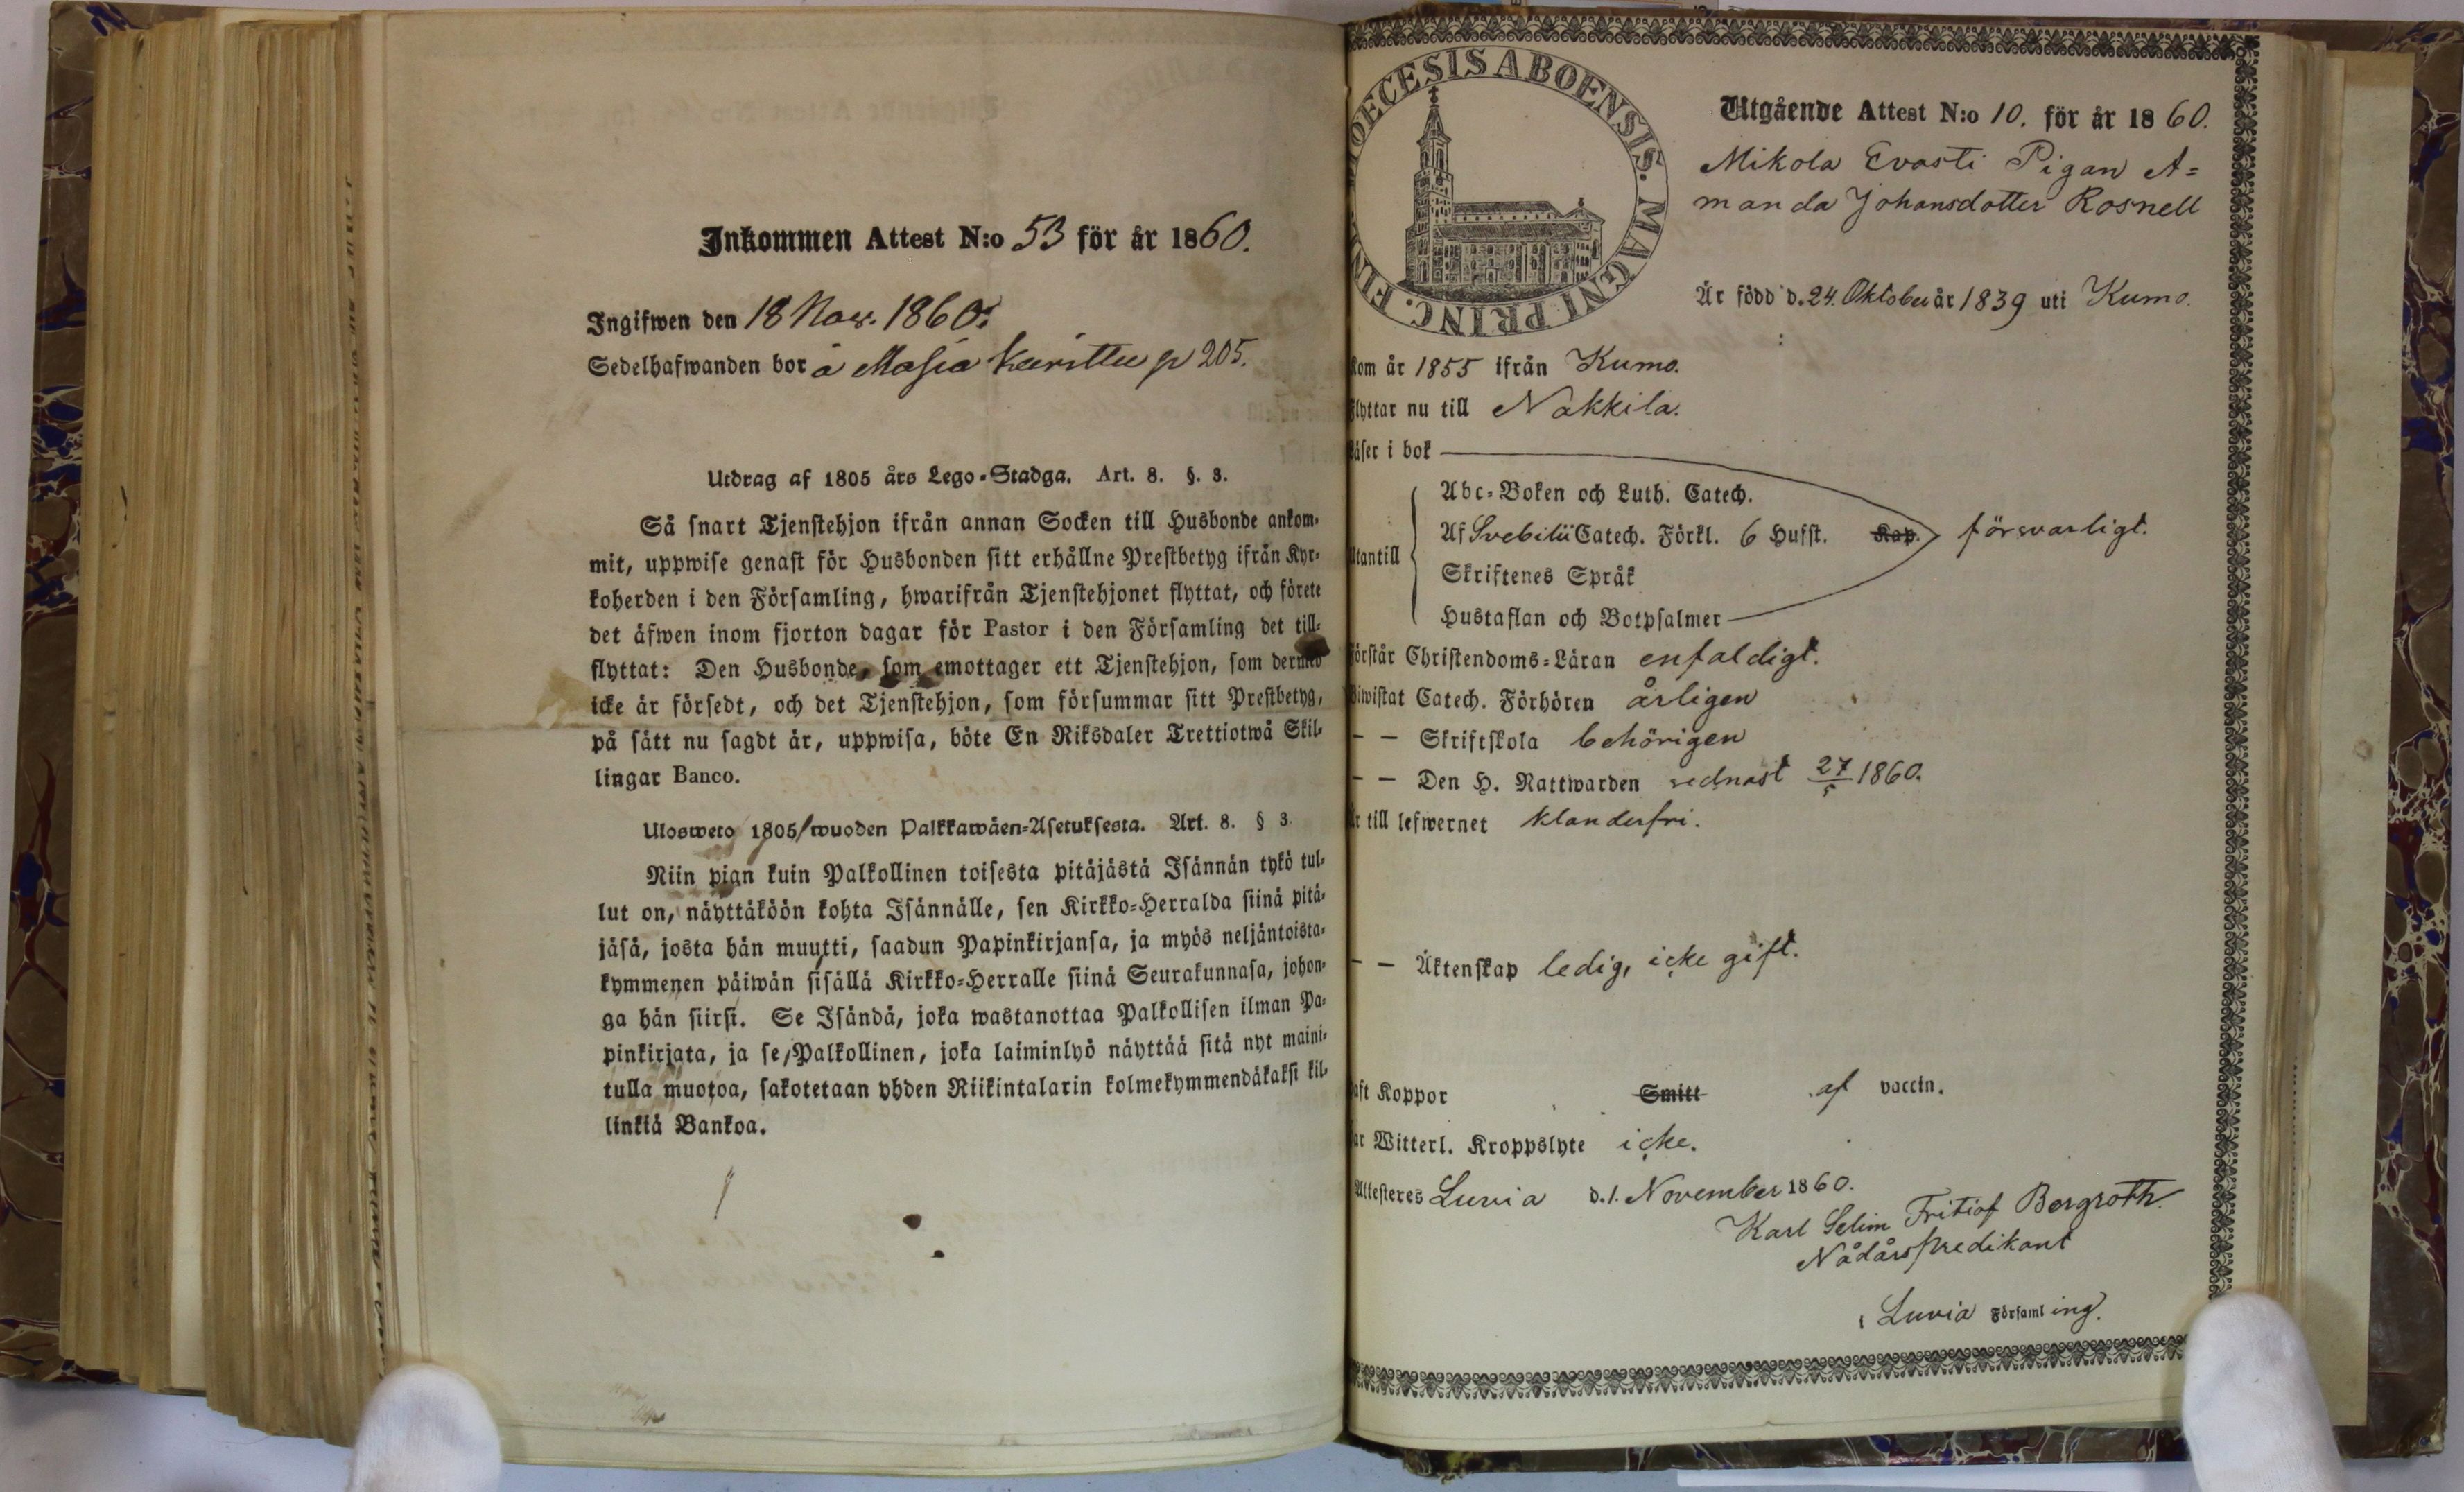 Inkommen Attest N:o 53 för år 1860.
Ingifwen den 18 Nov. 1860.
Sedelhafwanden bor å Masia Kurittu p 205.
Utdrag af 1805 års Lego-Stadga. Art. 8. §. 3.
Så snart Tjenstehjon ifrån annan Socken till Husbonde ankom-
mit, uppwise genast för Husbonden sitt erhållne Prestbetyg ifrån Kyr-
koherden i den Församling, hwarifrån Tjenstehjonet flyttat, och förete
det äfwen inom fjorton dagar för Pastor i den Församling det till-
flyttat: Den Husbonde, som emottager ett Tjenstehjon, som dermed
icke är försedt, och det Tjenstehjon, som försummar sitt Prestbetyg,
på sätt nu sagdt är, uppwisa, böte En Riksdaler Trettiotwå Skil-
lingar Banco.
Ulosweto 1805 wuoden Palkkawäen-Asetuksesta. Art. 8. § 3.
Niin pian kuin Palkollinen toisesta pitäjästä Isännän tykö tul-
lut on, näyttäköön kohta Isännälle, sen Kirkko-Herralda siinä pitä-
jäsä, josta hän muutti, saadun Papinkirjansa, ja myös neljäntoista-
kymmenen päiwän sisällä Kirkko-Herralle siinä Seurakunnasa, johon-
ga hän siirsi. Se Isändä, joka wastanottaa Palkollisen ilman Pa-
pinkirjata, ja se Palkollinen, joka laiminlyö näyttää sitä nyt maini-
tulla muotoa, sakotetaan yhden Riikintalarin kolmekymmendäkaksi kil-
linkiä Bankoa.
DIOECESIS ABOENSIS. MAGNI PRINC. FIN
Utgående Attest N:o 10. för år 1860.
Mikola Evasti Pigan A=
manda Johansdotter Rosnell
Är född d. 24. Oktober år 1839 uti Kumo.
kom år 1855 ifrån Kumo.
flyttar nu till Nakkila.
Läser i bok
Abc-Boken och Luth. Catech.
Utantill Af Svebilii Catech. Förkl. 6 Hufst. Kap. försvarligt.
Skriftenes Språk
Hustaflan och Botpsalmer
Förstår Christendoms-Läran enfaldigt.
Biwistat Catech. Förhören årligen
– – Skriftskola behörigen
– – Den H. Nattwarden sednast 27/5 1860.
Är till lefwernet klanderfri.
– – Äktenskap ledig, icke gift.
aft Koppor Smitt af vaccin.
ar Witterl. Kroppslyte icke.
Attesteres Luvia d. 1. November 1860.
Karl Selim Fritiof Bergroth.
Nådårspredikant
i Luvia Församling.